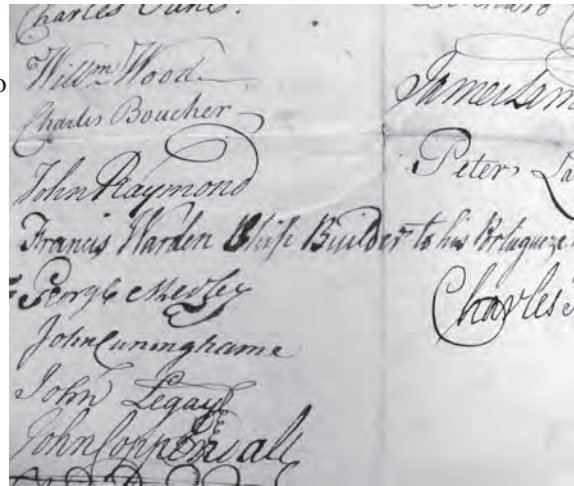 Charles
Willm Wood
Charles Boucher
John Raymond
Francis Warden Ship Builder to his Portugueze
George Medley
John Cuninghame
John Legay
John Coppendall
James Lam
Peter La
Charles